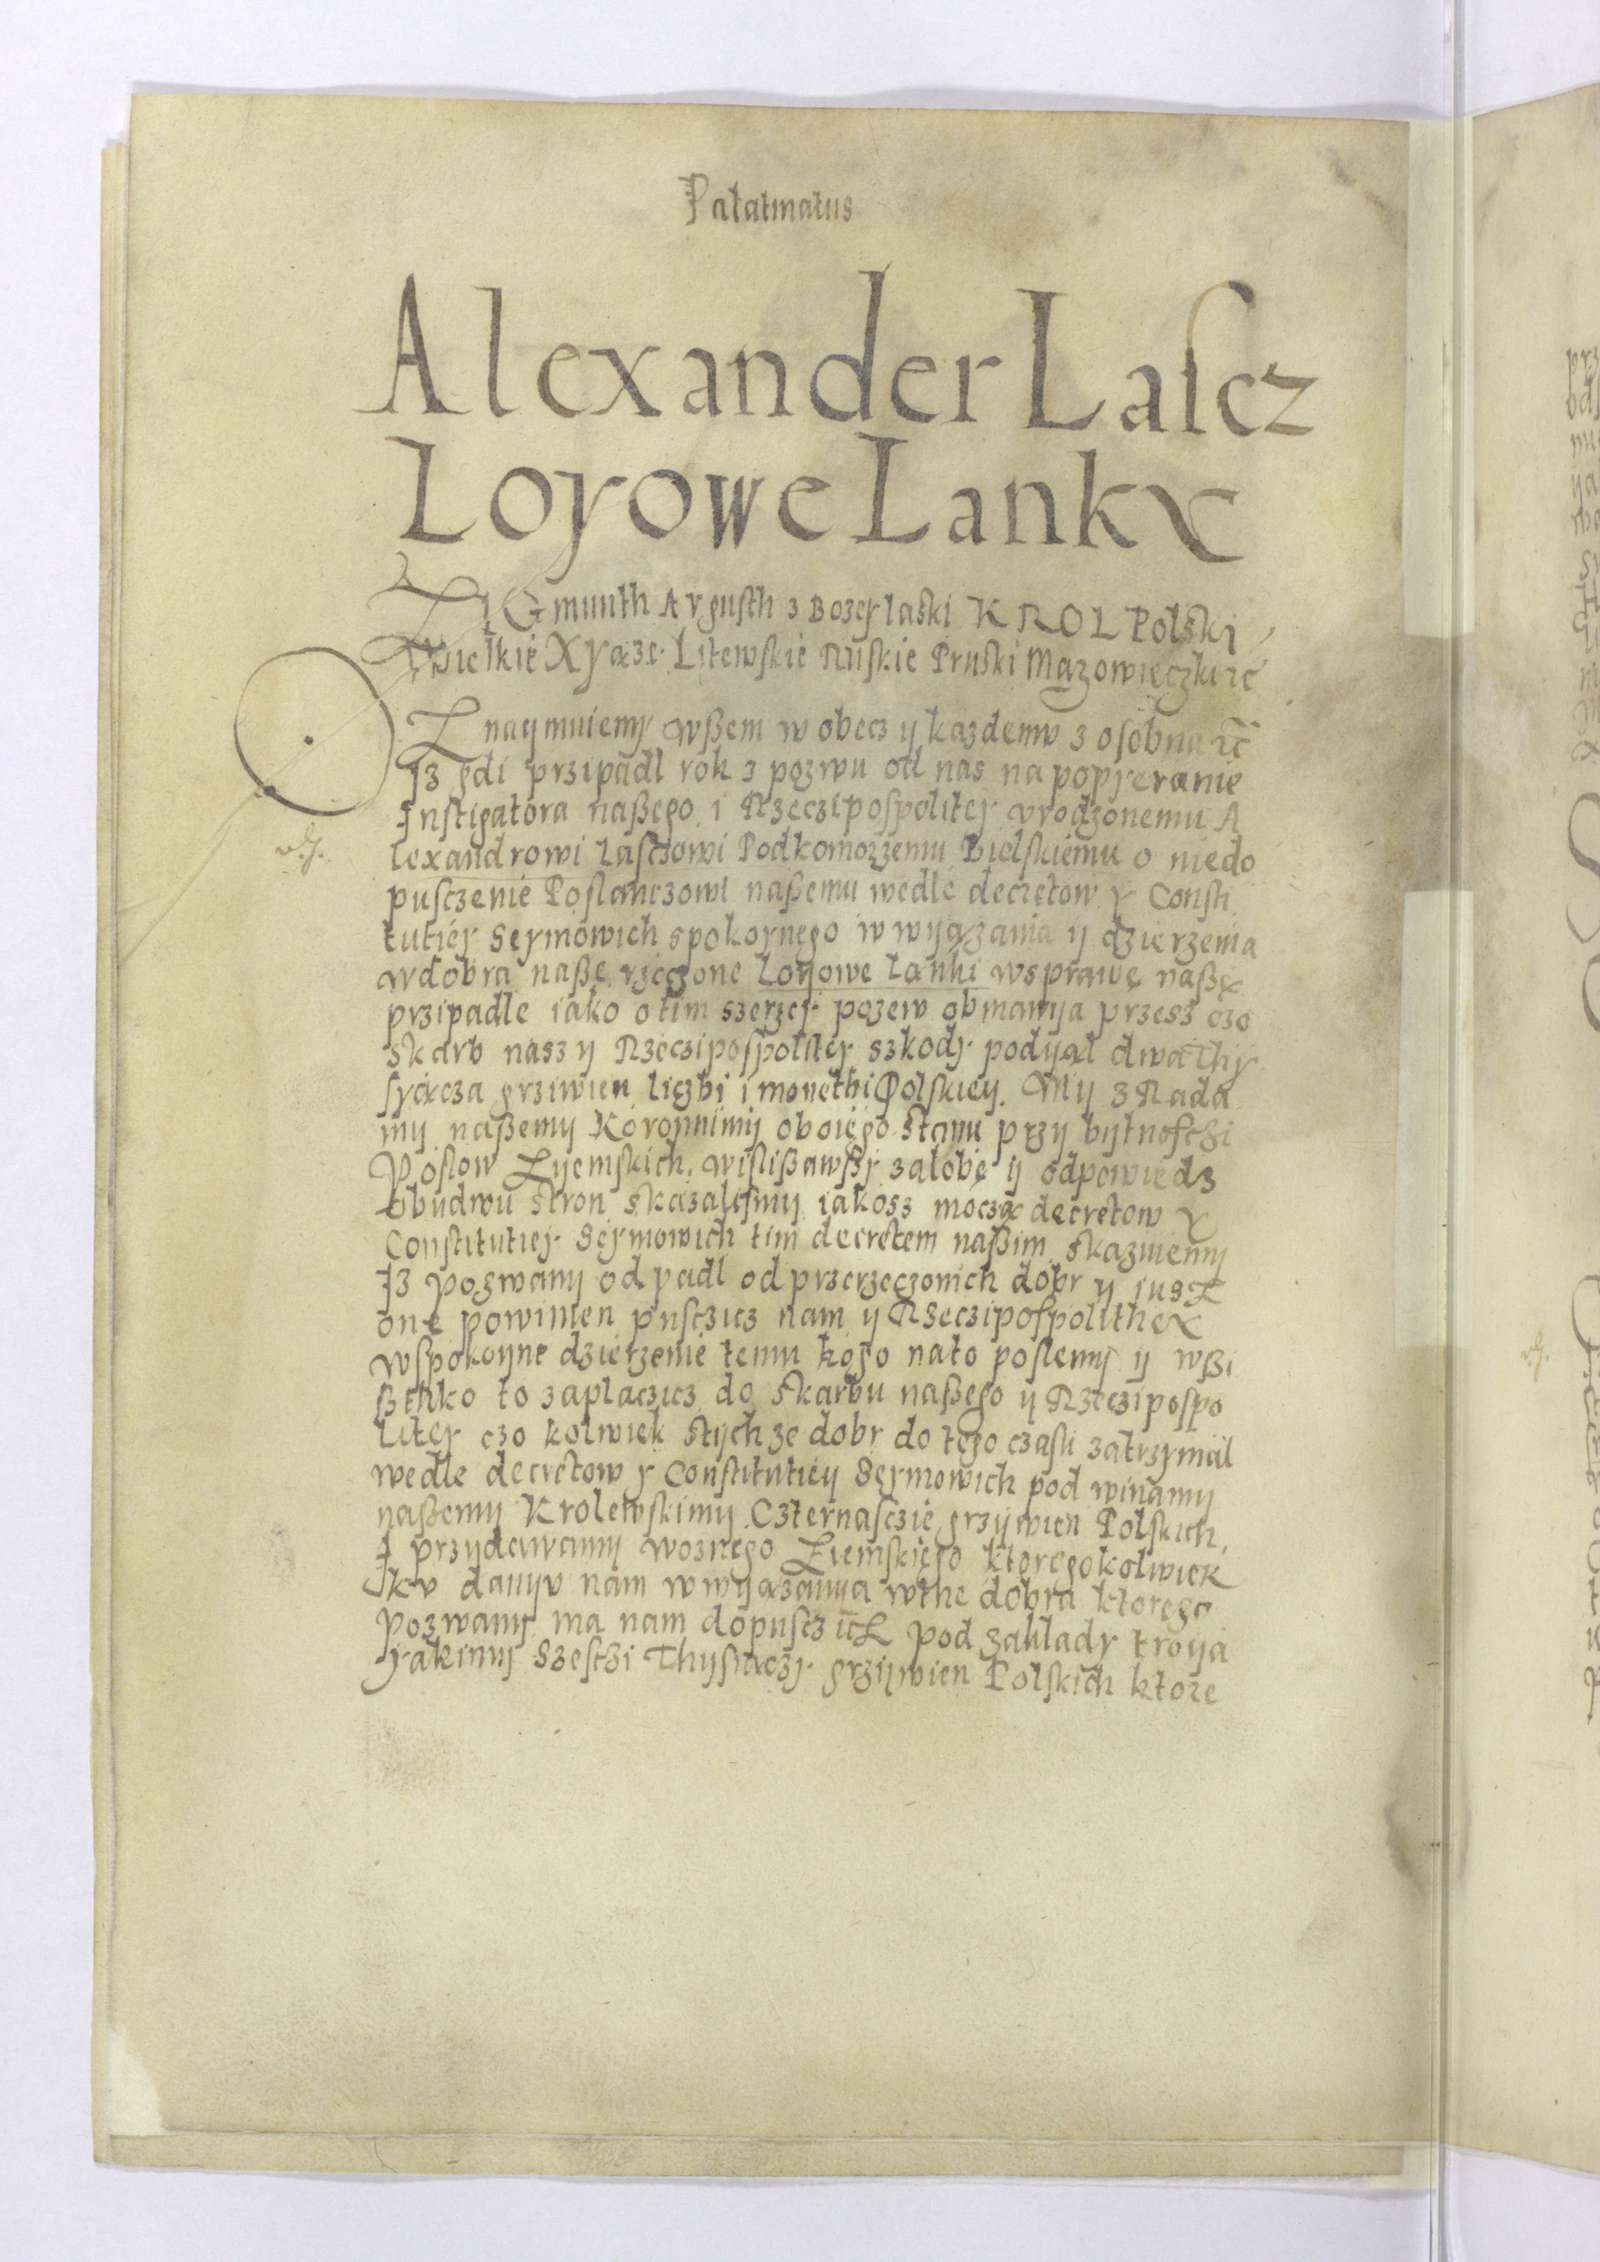 Palatinatus
Alexander Lascz
Loyowe Lanky
ZIGmunth Avgusth z Bozey laski KROL Polski
Wielkie Xyąze Litewskie Ruskie Pruski Mazowieczki ꝛc
Znaymuiemy wßem w obecz y kazdemv z osobna ꝛc
Iz gdi przipadl rok z pozwu od nas na popyeranie
Instigatora naßego i Rzeczipospolitey vrodzonemu A
lexandrowi Lasczowi Podkomorzemu Bielskiemu o niedo
pusczenie Poslanczowi naßemu wedle decretow y Consti
tutiey Seymowich spokoynego w wyązania y dzierzenia
w dobra naße rzeczone Loyowe Lanki w sprawę naßę
przipadle iako o tim szerzey pozew obmawya przesz czo
skarb nasz y Rzeczipospolitey szkody podyął dwa thy
syącza grziwien liczbi i monethi Polskiey. My z Rada
my naßemy Koronnimy oboiego stanu przy bytnosczi
Poslow Zyemskich, wislißawßy załobę y odpowiedz
obudwu stron skazalismy iakosz moczą decretow y
Constitutiey Seymowich tim decretem naßim skazuiemy
Iz pozwany odpadl od przerzeczonich dobr y iusz
one powinien pusczicz nam y Rzeczipospolithey
w spokoyne dzierzenie temu kogo na to poslemy y wßi
ßthko to zaplaczicz do skarbu naßego y Rzeczipospo
litey czo kolwiek stych ze dobr do tego czasu zatrzymal
wedle decretow y Constitutiey Seymowich pod winamy
naßemy Krolewskimy Czternasczie grzywien Polskich,
I przydawamy woznego Ziemskiego ktoregokolwiek
kv danyv nam w wyązanya w the dobra ktorego
pozwany ma nam dopusczicz pod zakłady troya
yakimy szesczi Thysiączy grzywien Polskich ktore